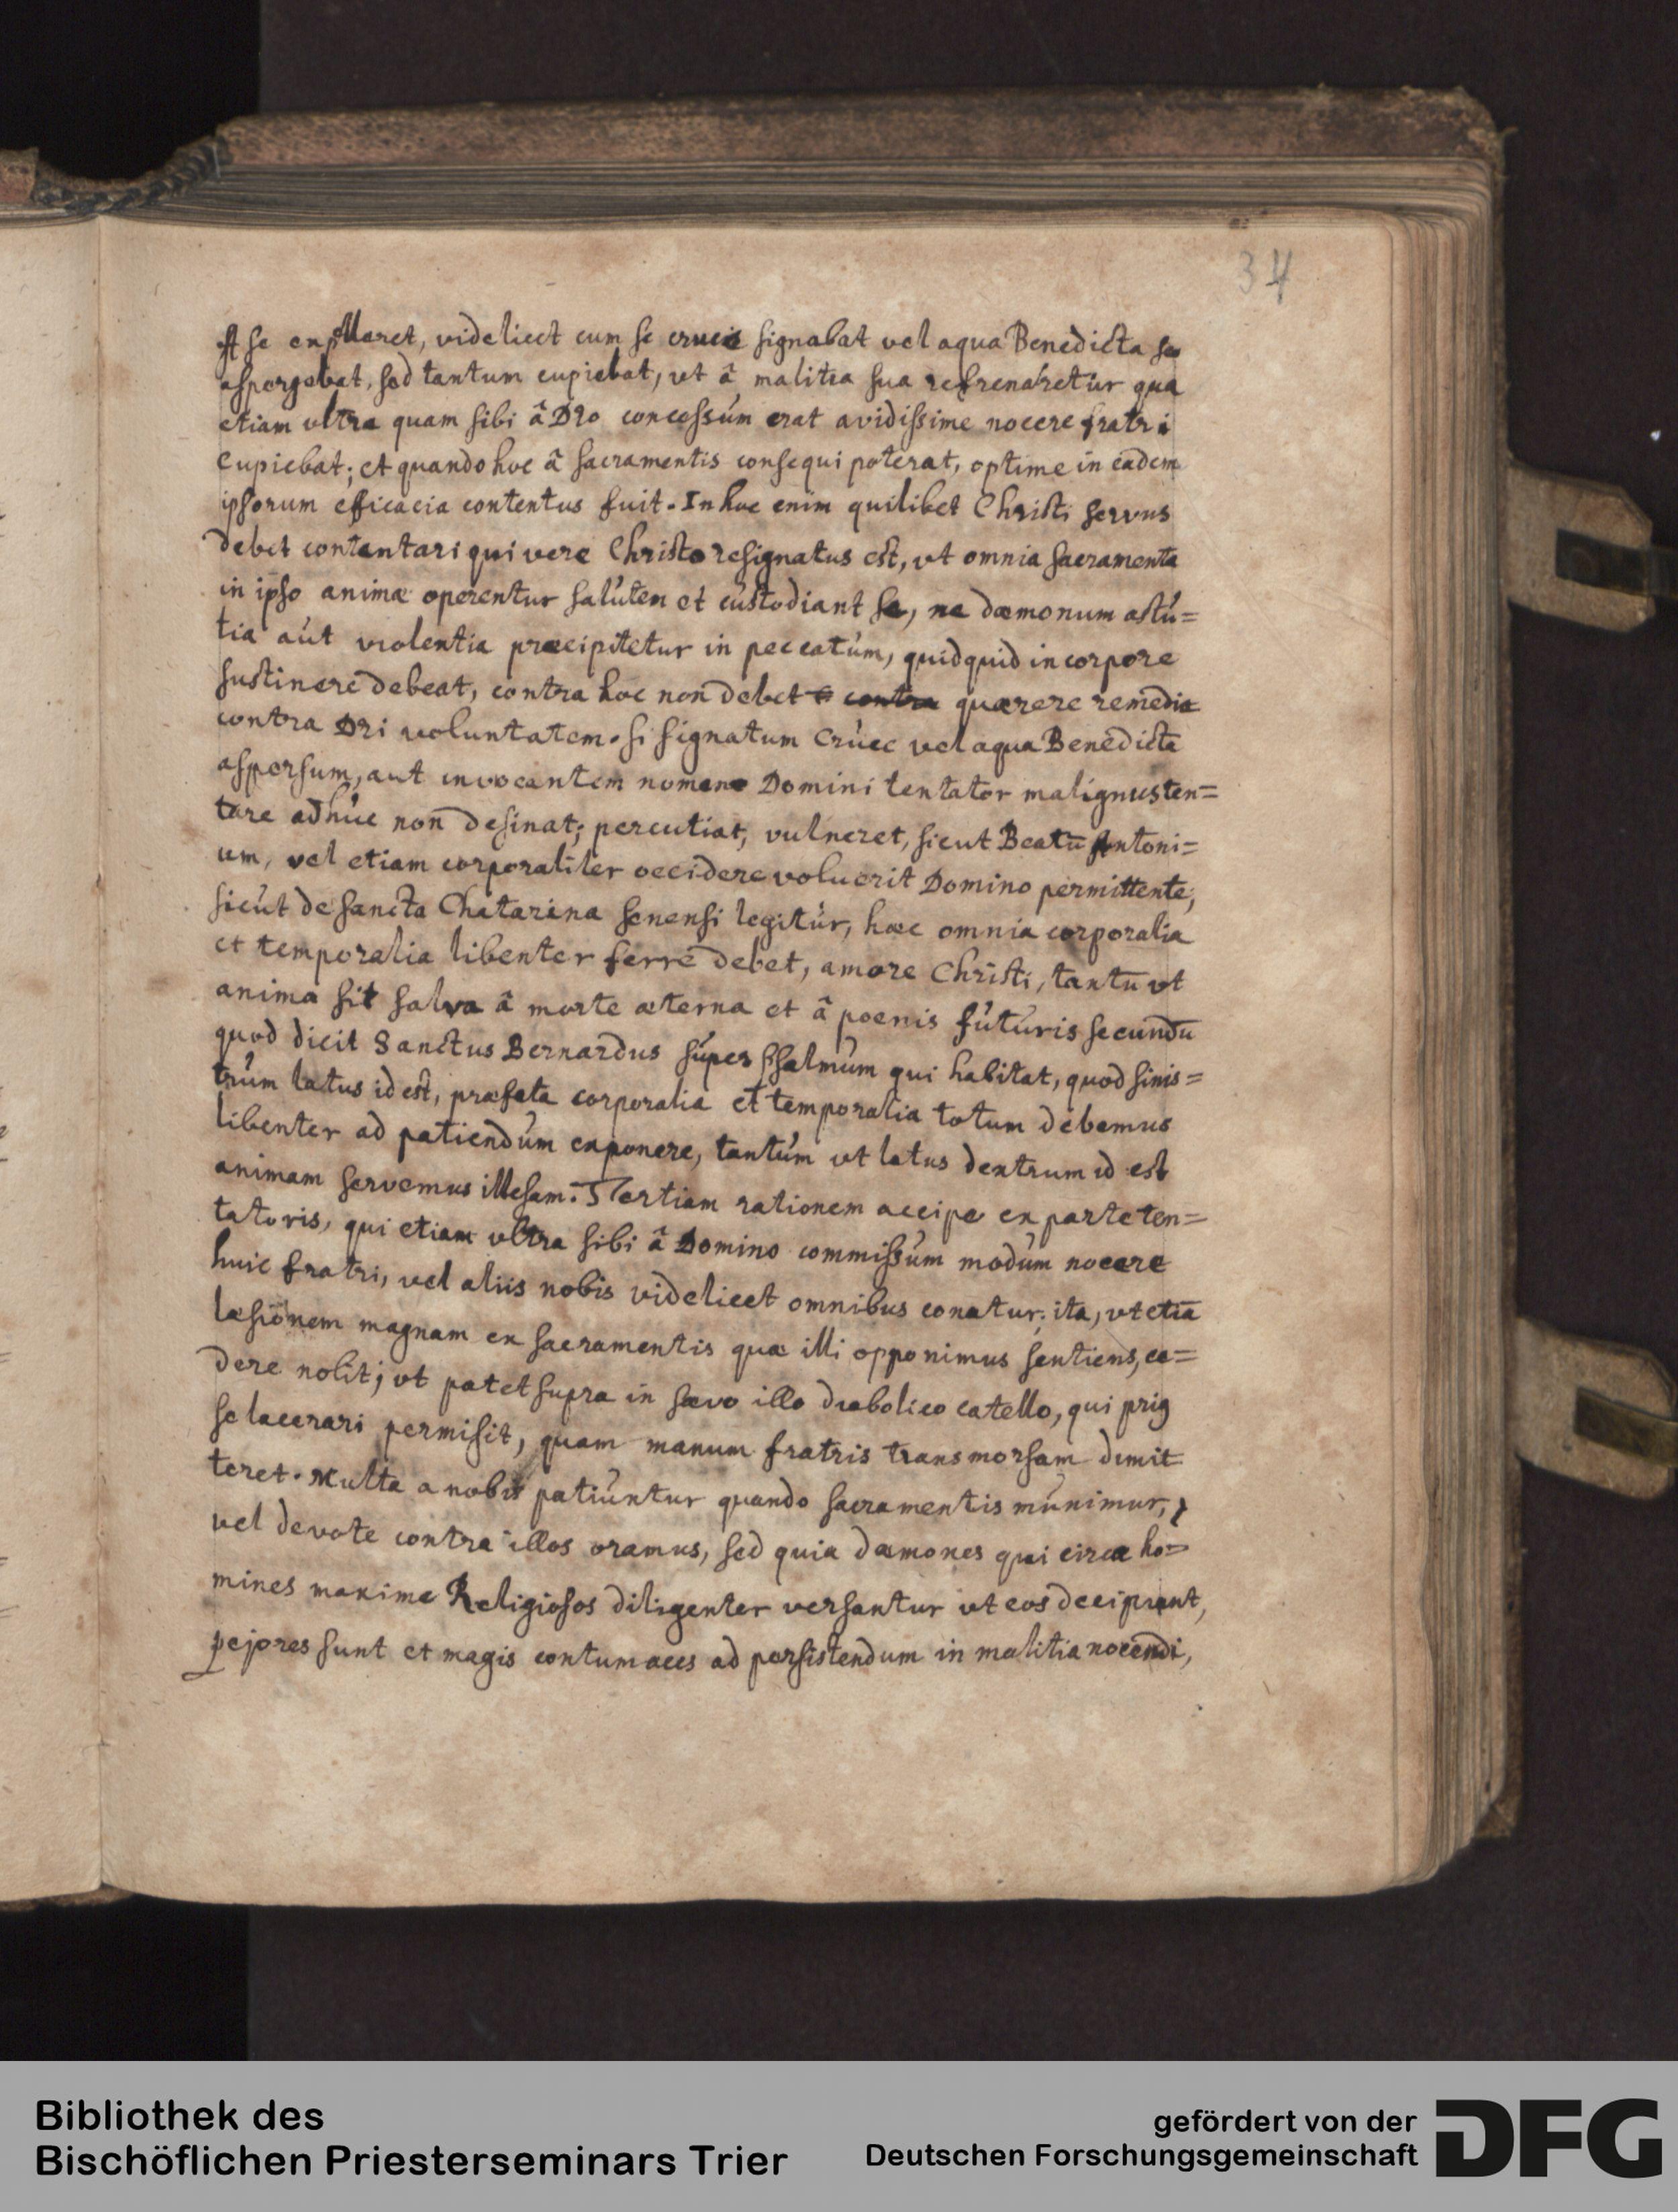 34
A se expelleret, videlicet cum se crucis signabat vel aqua Benedicta se
aspergebat, sed tantum cupiebat, ut â malitia sua refrenaretur qua
etiam ultra quam sibi â Deo concessum erat avidissime nocere fratri
Cupiebat; et quando hoc â sacramentis consequi poterat, optime in eadem
ipsorum efficacia contentus fuit. In hoc enim quilibet Christi servus
debet contentari qui vere Christo resignatus est, vt omnia sacramenta
in ipso animæ operentur salutem et custodiant se, ne dæmonum astu=
tia aut violentia præcipitetur in peccatum, quidquid in corpore
sustinere debeat, contra hoc non debet contra quærere remedia
contra Dei voluntatem. si signatum Cruce vel aqua Benedicta
aspersum, aut invocantem nomen Domini tentator malignus ten=
tare adhuc non desinat; percutiat, vulneret, sicut Beatū Antoni=
um, vel etiam corporaliter occidere voluerit Domino permittente,
sicut de sancta Chatarina senensi legitur, hæc omnia corporalia
et temporalia libenter ferre debet, amore Christi, tantū vt
anima sit salva â morte æterna et â poenis futuris secundū
quod dicit Sanctus Bernardus super Psalmum qui habitat, quod sinis=
trum latus id est, præfata corporalia et temporalia totum debemus
libenter ad patiendum exponere, tantum vt latus dextrum id est
animam servemus illesam. Tertiam rationem accipe ex parte ten=
tatoris, qui etiam vltra sibi â Domino commissum modum nocere
huic fratri, vel aliis nobis videlicet omnibus conatur; ita, vt etiā
læsionem magnam ex sacramentis quæ illi opponimus sentiens, ce=
dere nolit; vt patet supra in sævo illo diabolico catello, qui prig
se lacerari permisit, quam manum fratris transmorsam dimit
teret. Multa a nobis patiuntur quando sacramentis munimur,
vel devote contra illos oramus, sed quia dæmones qui circa ho=
mines maxime Religiosos diligenter versantur ut eos decipiant,
pejores sunt et magis contumaces ad persistendum in malitia nocendi,
Bibliothek des
Bischöflichen Priesterseminars Trier
gefördert von der
Deutschen Forschungsgemeinschaft
DFG